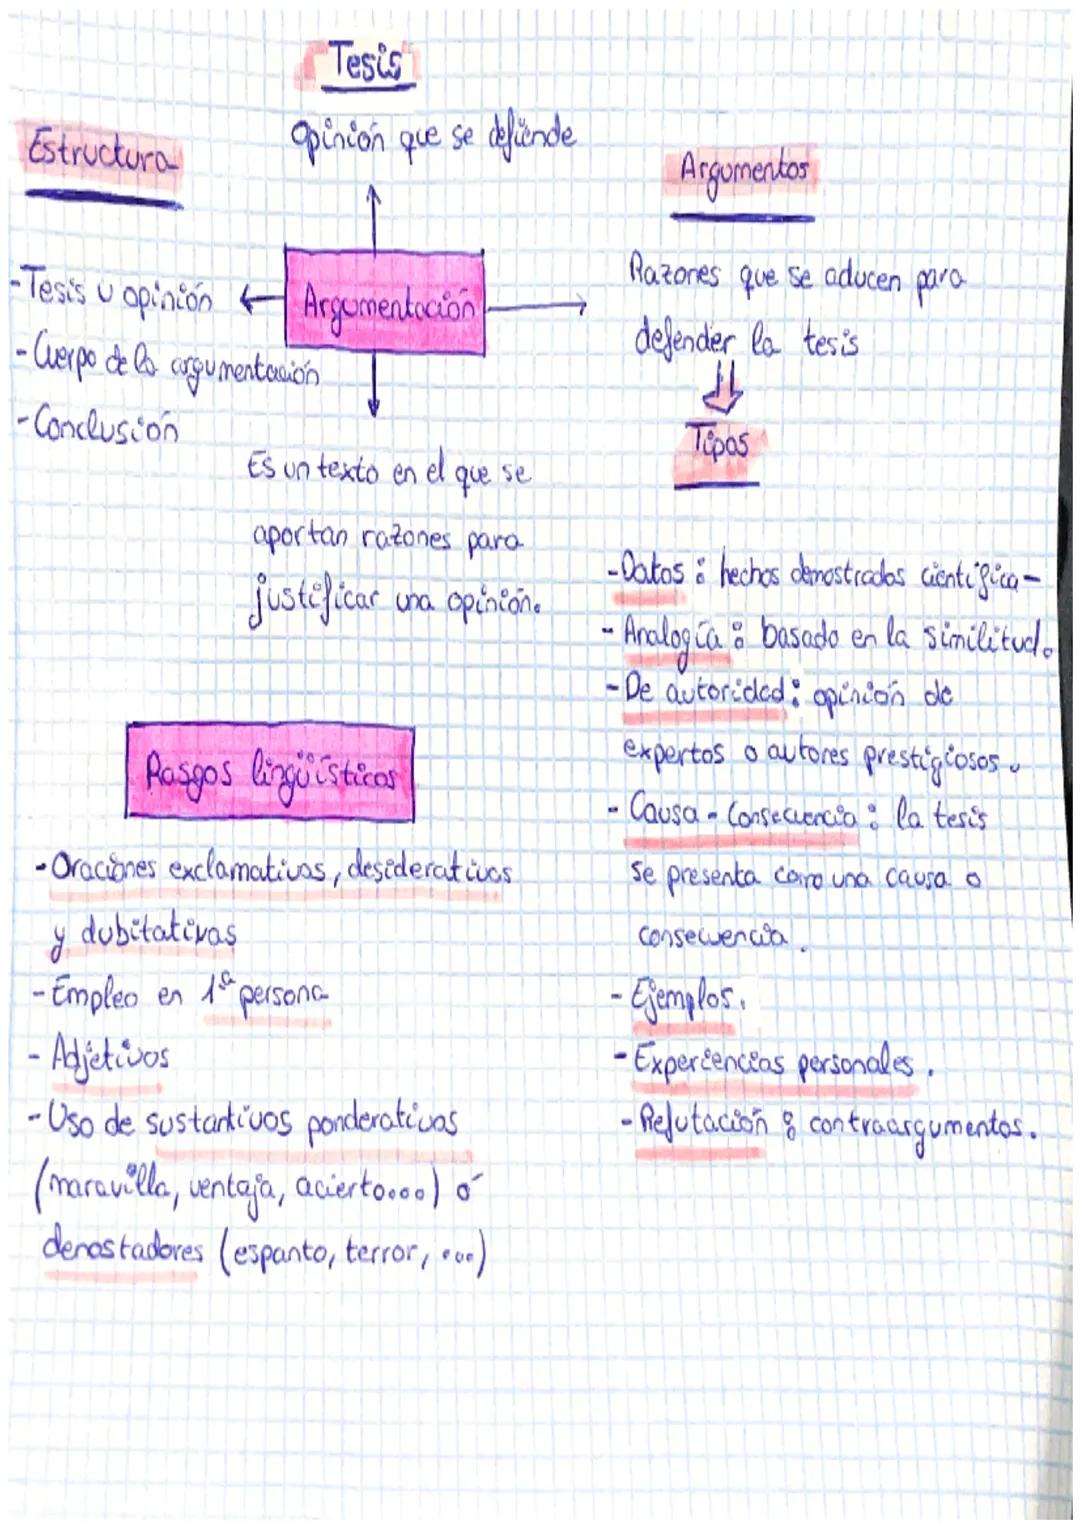 Tesis
Opinión que se defiende
Estructura
-Tesis u opinión
-Cuerpo de la argumentación
-Conclusión
Argumentación
Es un texto en el que se
aportan razones para
justificar una opinión.
Argumentos
Razones que se aducen para
defender la tesis
Tipos
-Datos: hechos demostrados científica-
-Analogía: basado en la similitud.
-De autoridad: opinión de
expertos o autores prestigiosos.
-Causa-Consecuencia: la tesis
se presenta como una causa o
consecuencia.
-Ejemplos.
-Experiencias personales.
-Refutación: contraargumentos.
Rasgos lingüísticos
-Oraciones exclamativas, desiderativas
y dubitativas
-Empleo en 1ª persona
-Adjetivos
-Uso de sustantivos ponderativos
(maravilla, ventaja, acierto...) ó
denostadores (espanto, terror, ...)